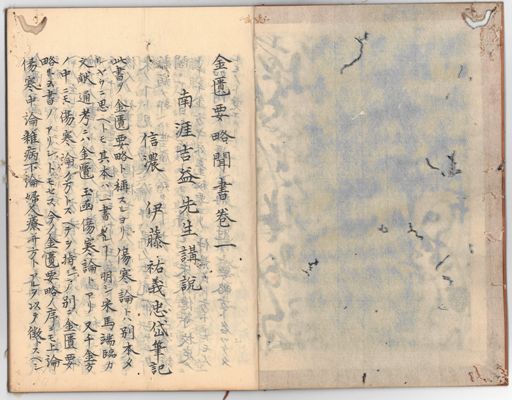 金匱要略聞書卷一
南涯吉益先生講説
信濃 伊藤祐義忠岱筆記
此書ノ金匱要略ト稱スルヨリ傷寒論ト別本タ
ルヤウニ思ヘトモ其本ハ一書ナルコト明シ宋馬端臨カ
文献通考ニハ金匱玉函傷寒論トアリ又千金方
ノ中ニモ傷寒論ノ方トス
略ト云書ノアリシトモセス今ノ金匱要略ノ序ニモ上論
傷寒中論雜病下論婦人療